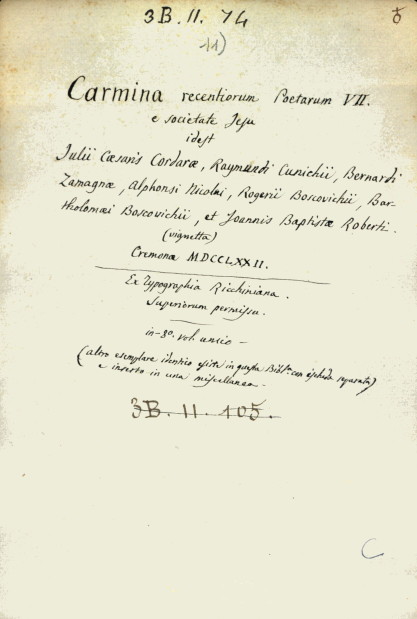 3B. II. 74
11)
Carmina recentiorum Poetarum VII.
e societate Jesu
idest
Julii Cæsaris Cordaræ, Raymundi Cunichii, Bernardi
Zamagnæ, Alphonsi Nicolai, Rogerii Boscovichii, Bar-
tholomæi Boscovichii, et Joannis Baptistæ Roberti.
(vignetta)
Cremonæ MDCCLXXII.
Ex Typographia Ricchiniana.
Superiorum permissu.
in-8°. vol. unico -
(altro esemplare identico esiste in questa Bibl.ª con ischeda separata)
e inserto in una miscellanea -
3B. II. 105.
C